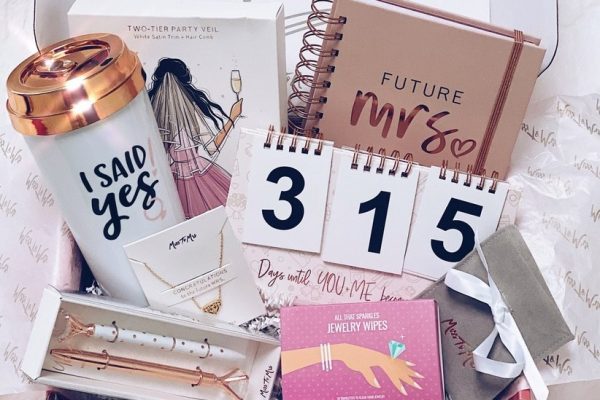 TWO-TIER PARTY VEIL
White Satin Trim + Hair Comb
FUTURE
mrs
I SAID
yes!
3 1 5
Days until YOU + ME
Miss To Mrs
CONGRATULATIONS
to the future MRS.
ALL THAT SPARKLES
JEWELRY WIPES
Miss To Mrs
Miss To Mrs